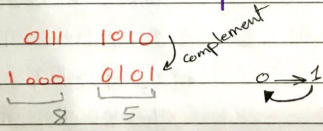 0111 1010
complement
1000 0101
0 → 1
8 5